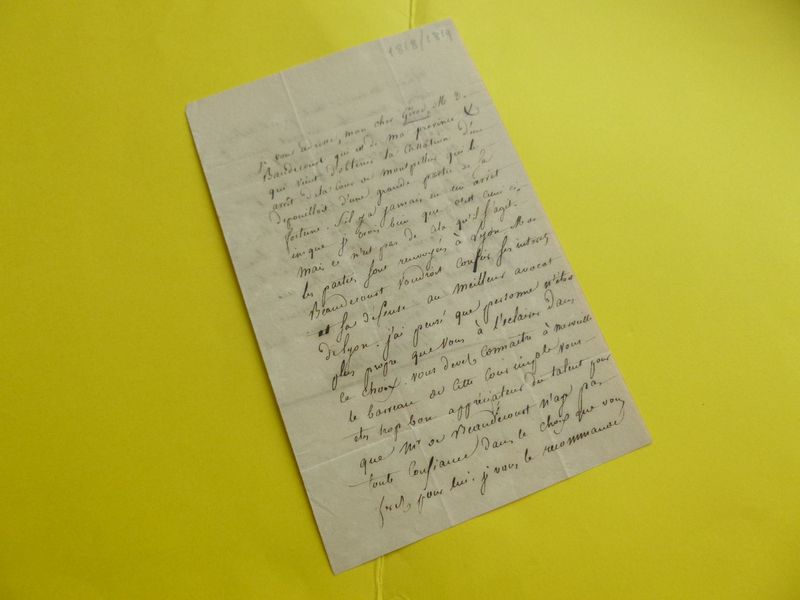 1818/1819
Je vous adresse, mon cher Girod, M. D.
Beaudecourt qui est de ma province &
qui vient d'obtenir la Cassation d'un
arrêt de la Cour de Montpellier qui le
depouilloit d'une grande partie de sa
fortune. S'il y a jamais eu un arrêt
inique je crois bien que c'est celui ci
mais ce n'est pas de cela qu'il s'agit.
les parties sont renvoyées à Lyon. M. de
Beaudecourt voudroit confier ses intérets
et sa défense au meilleur avocat
de Lyon. j'ai pensé que personne n'étoit
plus propre que vous à l'éclairer dans
ce choix. vous devez connaître à merveille
le barreau de cette Cour vous
etes trop bon appréciateur du talent pour
que Mr de Beaudécourt n'ait pas
toute confiance dans le choix que vous
ferez pour lui. je vous le recommande